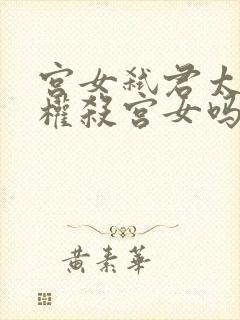 宫女弑君太
权殺宫女吗
黄素華